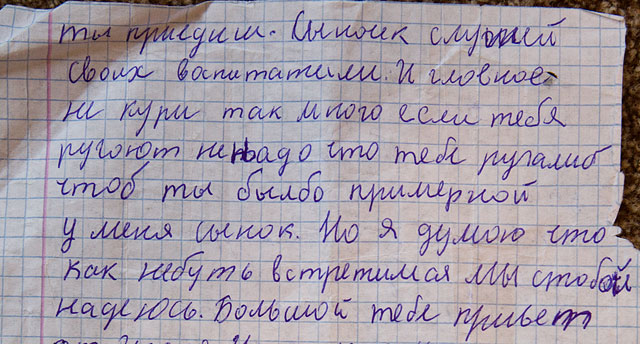 ты приедиш. Сыночик слушай
своих васпитатили. И главное
не кури так много если тебя
ругоют ненадо что тебе ругалиб
чтоб ты былбо примерной
у меня сынок. Но я думою что
как небуть встретимся мы стобой
надеюсь. Большой тебе привет